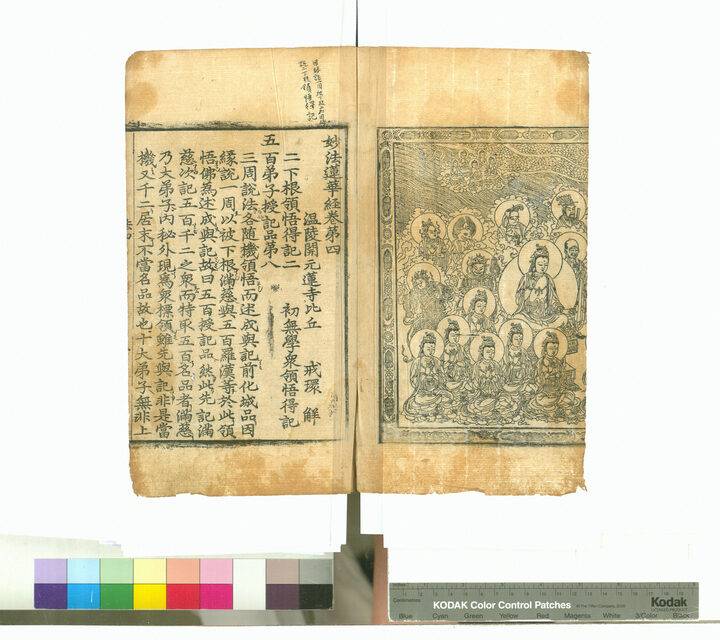 妙法蓮華經卷第四
溫陵開元蓮寺比丘 戒環 解
二下根領悟得記二 初無學衆領悟得記
五百弟子授記品第八
三周說法各随機領悟而述成與記前化城品因
緣說一周以被下根滿慈與五百羅漢等於此領
悟佛為述成與記故曰五百授記品然此先記滿
慈次記五百千二之衆而特取五百名品者滿慈
乃大弟子內秘外現爲衆標領雖先與記非是當
機又千二居末不當名品故也十大弟子無非上
Centimetres 1 2 3 4 5 6 7 8 9 10 11 12 13 14 15 16 17 18 19
KODAK Color Control Patches
Kodak
LICENSED PRODUCT
Blue Cyan Green Yellow Red Magenta White 3/Color Black